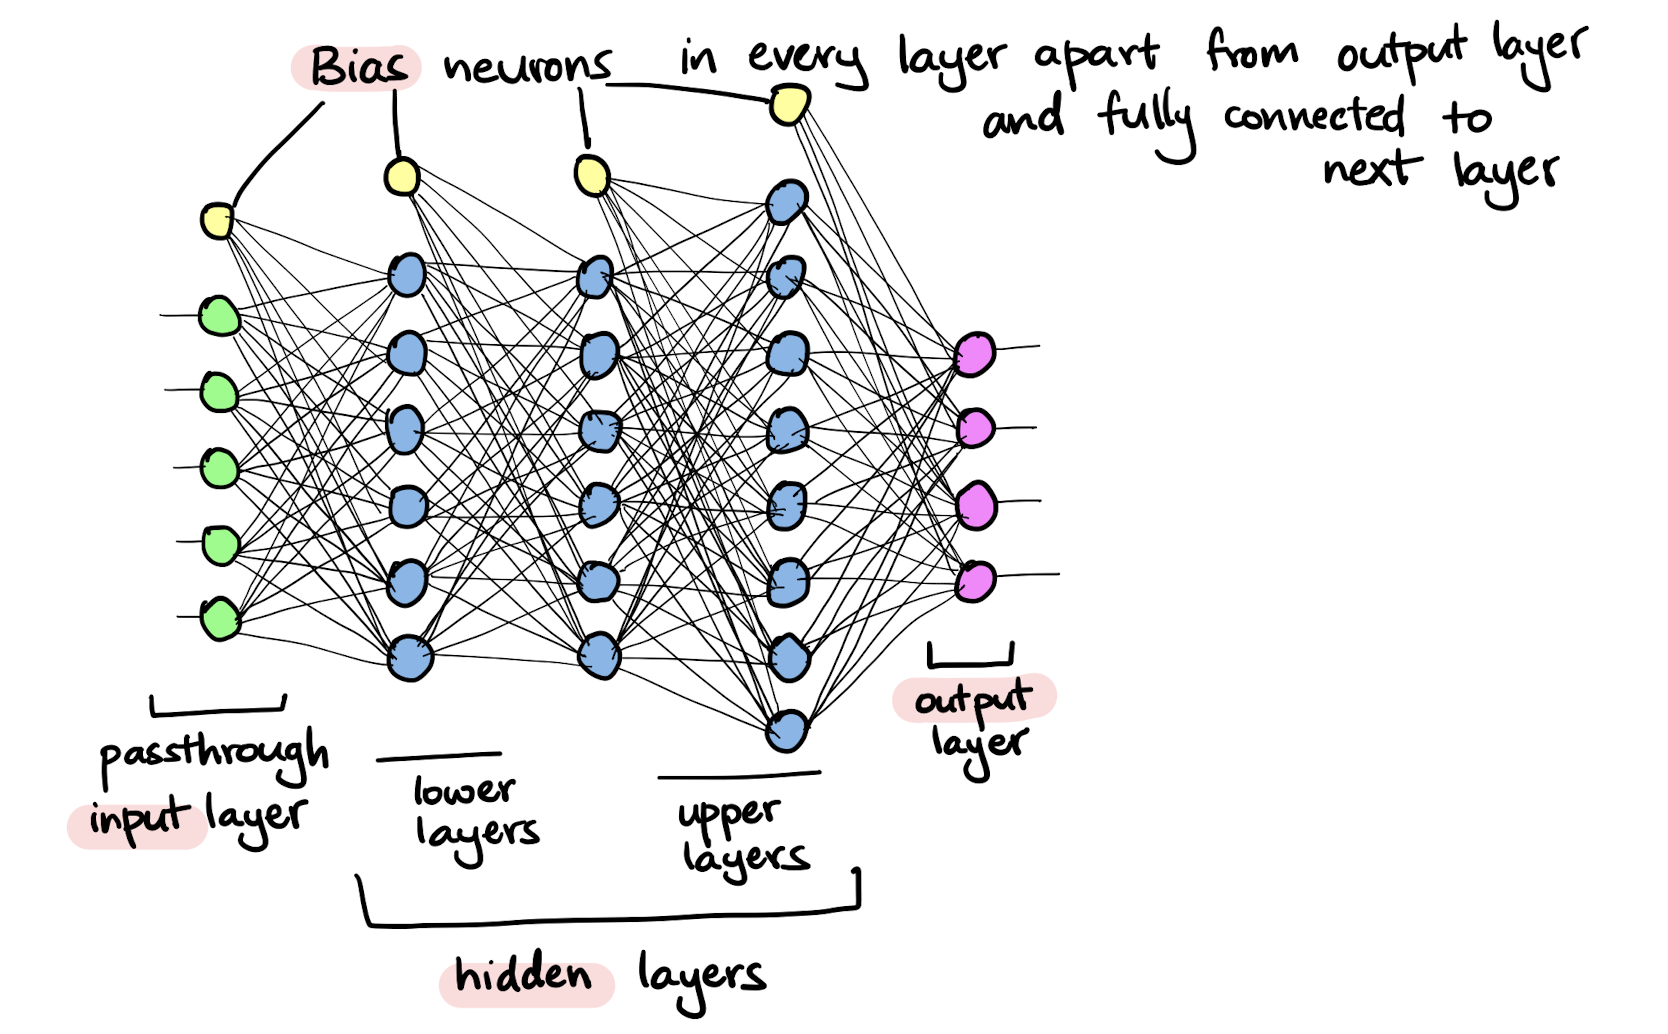 Bias neurons in every layer apart from output layer
and fully connected to
next layer
passthrough
input layer
lower
layers
upper
layers
output
layer
hidden layers